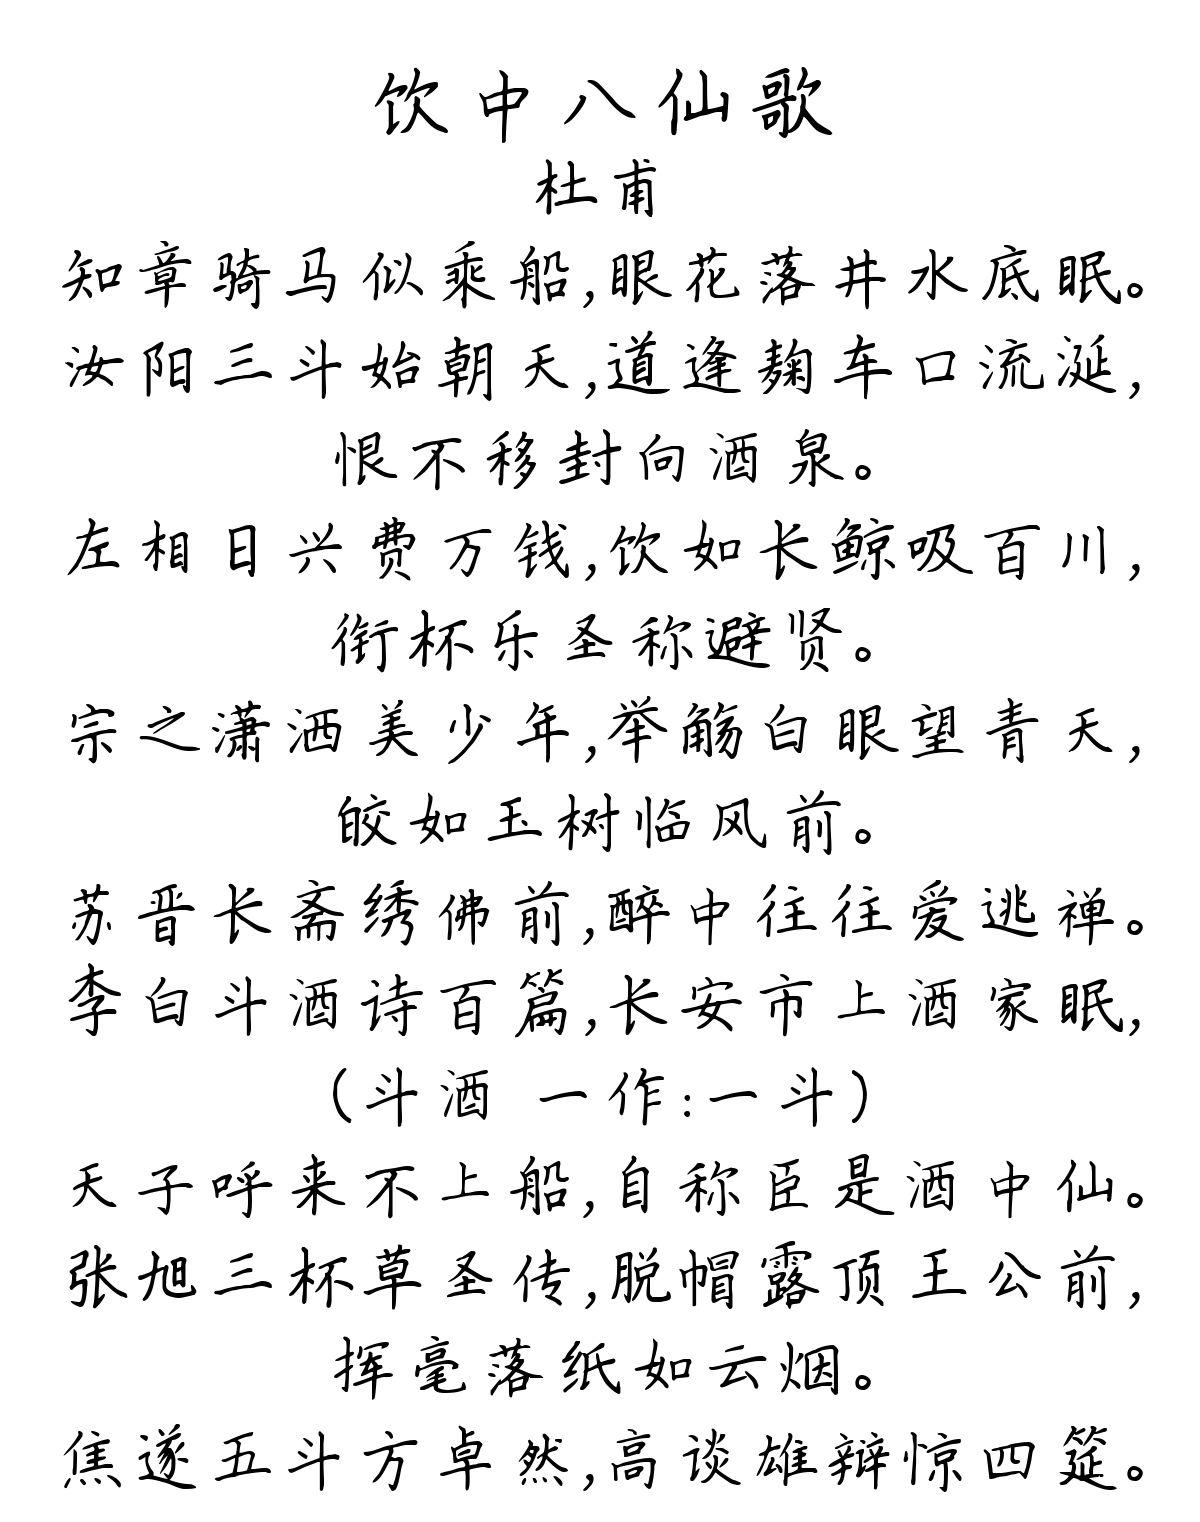 饮中八仙歌
杜甫
知章骑马似乘船,眼花落井水底眠。
汝阳三斗始朝天,道逢麹车口流涎,
恨不移封向酒泉。
左相日兴费万钱,饮如长鲸吸百川,
衔杯乐圣称避贤。
宗之潇洒美少年,举觞白眼望青天,
皎如玉树临风前。
苏晋长斋绣佛前,醉中往往爱逃禅。
李白斗酒诗百篇,长安市上酒家眠,
(斗酒 一作:一斗)
天子呼来不上船,自称臣是酒中仙。
张旭三杯草圣传,脱帽露顶王公前,
挥毫落纸如云烟。
焦遂五斗方卓然,高谈雄辩惊四筵。